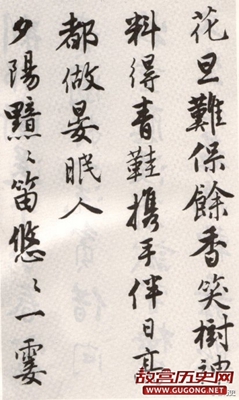 花旦難保餘香笑樹神
料得青鞋攜手伴日高
都做晏眠人
夕陽黯黯笛悠悠一霎
故宫历史网
WWW.GUGONG.NET